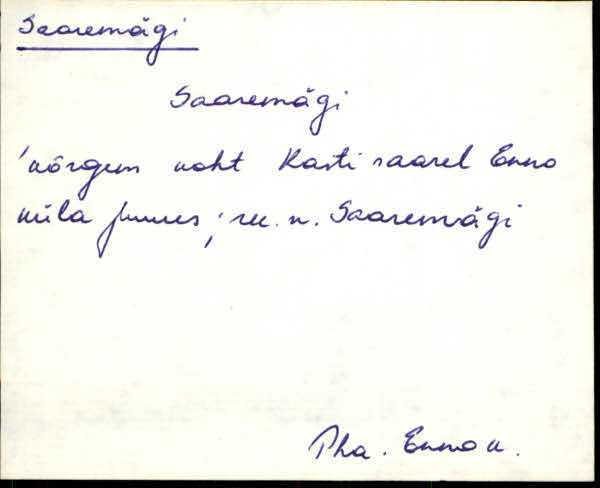 Saaremägi
Saaremägi
'kõrgem koht Kasti saarel Enno
küla juures; see. n. Saaremägi
Pha. Enno k.